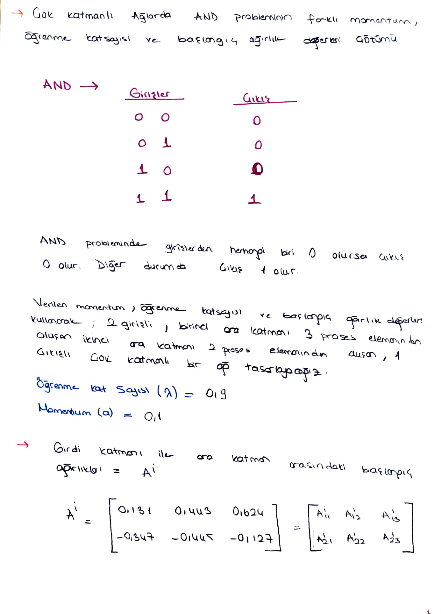 → Çok katmanlı Ağlarda AND probleminin farklı momentum,
öğrenme katsayısı ve başlangıç ağırlık değerleri Çözümü
AND →
Girişler Çıkış
0 0 0
0 1 0
1 0 0
1 1 1
AND probleminde girişlerden herhangi biri 0 olursa çıkış
0 olur. Diğer durumda Çıkış 1 olur.
Verilen momentum, öğrenme katsayısı ve başlangıç ağırlık değerleri
kullanarak; 2 girişli, birinci ara katmanı 3 proses elemanından
oluşan ikinci ara katmanı 2 proses elemanından oluşan, 1
Çıkışlı Çok katmanlı bir ağ tasarlayacağız.
Öğrenme kat sayısı (λ) = 0,9
Momentum (α) = 0,1
→ Girdi katmanı ile ara katman arasındaki başlangıç
ağırlıkları = Aⁱ
Aⁱ = [ 0,131 0,443 0,624 ] = [ Aⁱ₁₁ Aⁱ₁₂ Aⁱ₁₃ ]
[ -0,347 -0,445 -0,127 ] [ Aⁱ₂₁ Aⁱ₂₂ Aⁱ₂₃ ]